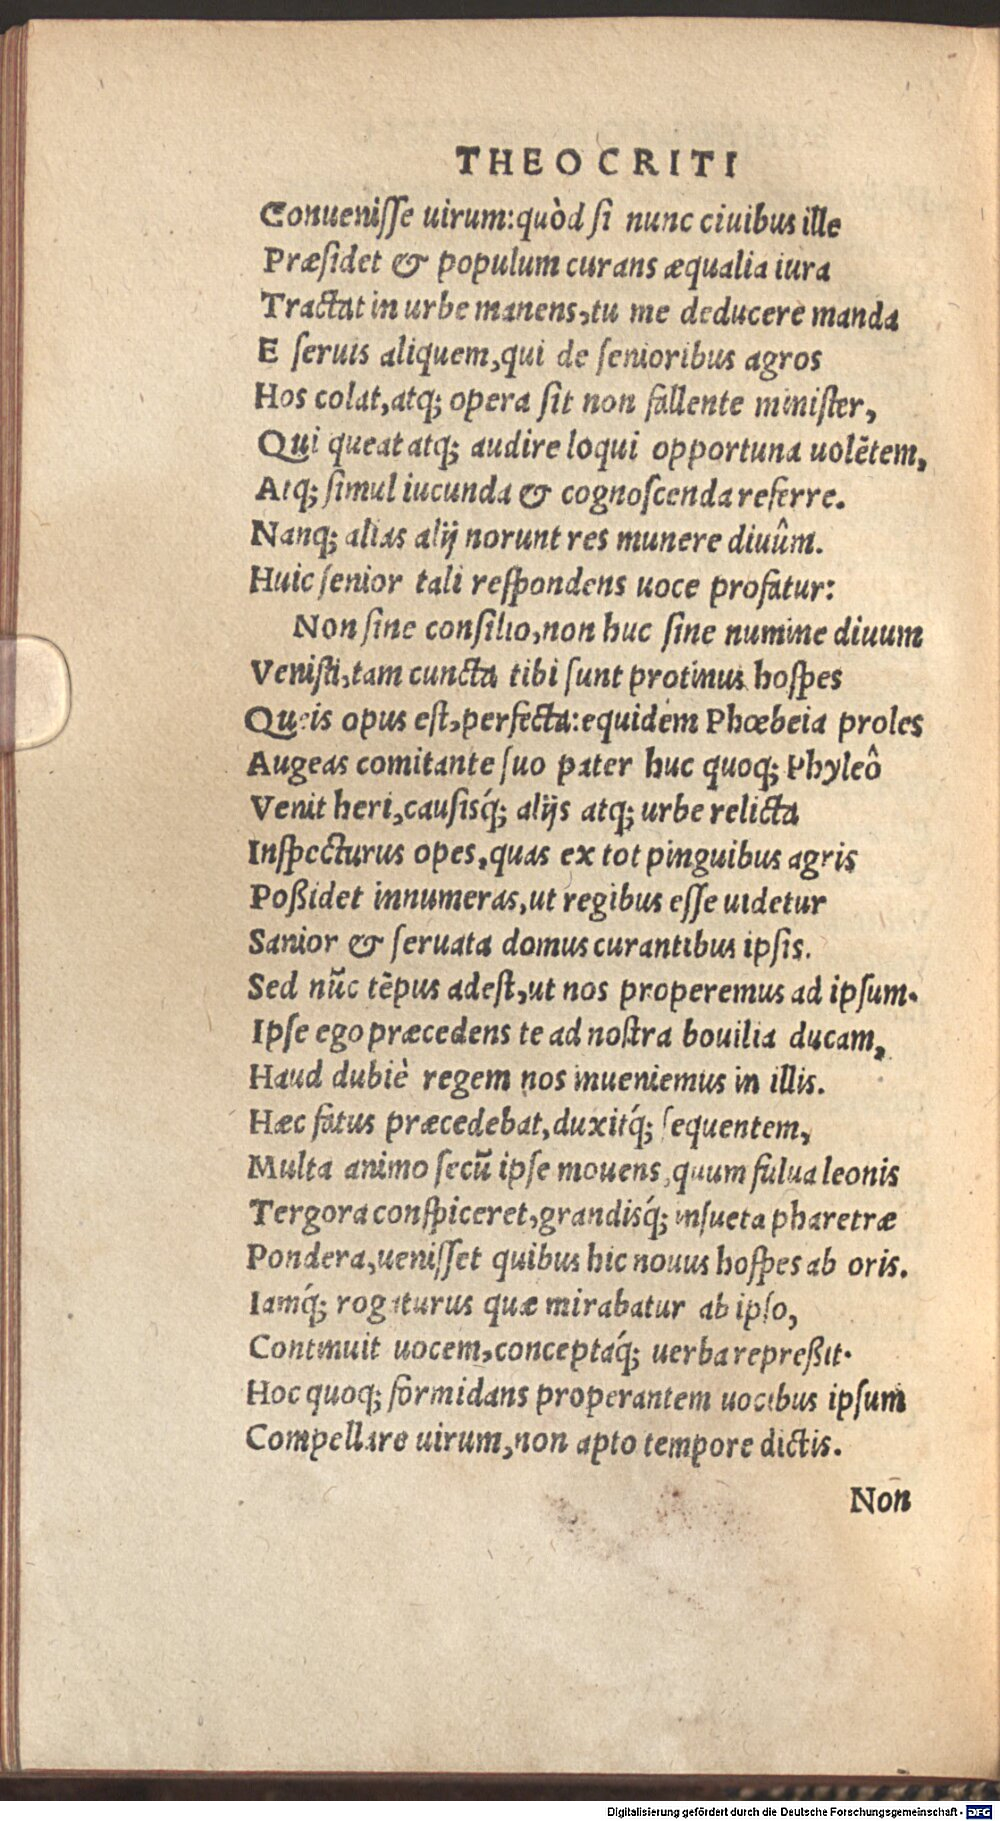 THEOCRITI
Conuenisse uirum:quòd si nunc ciuibus ille
Præsidet & populum curans æqualia iura
Tractat in urbe manens,tu me deducere manda
E seruis aliquem,qui de senioribus agros
Hos colat,atq; opera sit non fallente minister,
Qui queat atq; audire loqui opportuna uolētem,
Atq; simul iucunda & cognoscenda referre.
Nanq; alias alij norunt res munere diuûm.
Huic senior tali respondens uoce profatur:
Non sine consilio,non huc sine numine diuum
Venisti,tam cuncta tibi sunt protinus hospes
Queis opus est,perfecta:equidem Phœbeia proles
Augeas comitante suo pater huc quoq; Phyleô
Venit heri,causisq́; alijs atq; urbe relicta
Inspecturus opes,quas ex tot pinguibus agris
Poßidet innumeras,ut regibus esse uidetur
Sanior & seruata domus curantibus ipsis.
Sed nūc tēpus adest,ut nos properemus ad ipsum.
Ipse ego præcedens te ad nostra bouilia ducam,
Haud dubiè regem nos inueniemus in illis.
Hæc fatus præcedebat,duxitq́; sequentem,
Multa animo secū ipse mouens,quum fulua leonis
Tergora conspiceret,grandisq́; insueta pharetræ
Pondera,uenisset quibus hic nouus hospes ab oris.
Iamq́; rogaturus quæ mirabatur ab ipso,
Continuit uocem,conceptaq́; uerba repreßit.
Hoc quoq; formidans properantem uocibus ipsum
Compellare uirum,non apto tempore dictis.
Non
Digitalisierung gefördert durch die Deutsche Forschungsgemeinschaft - DFG